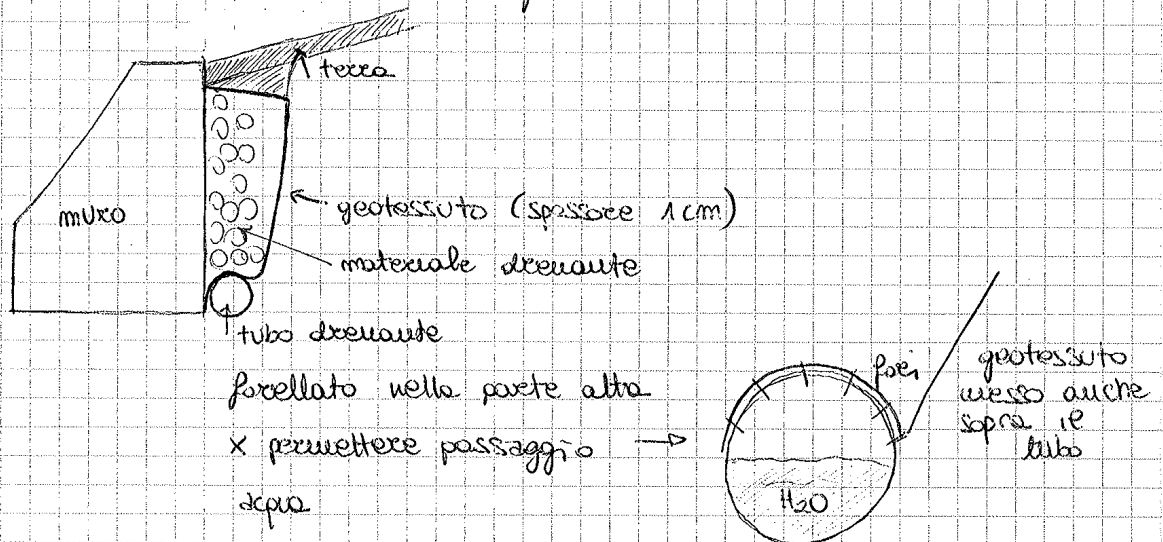 terra
muro
geotessuto (spessore 1 cm)
materiale drenante
tubo drenante
forellato nella parte alta
x permettere passaggio
acqua
fori
geotessuto
messo anche
sopra il
tubo
H2O